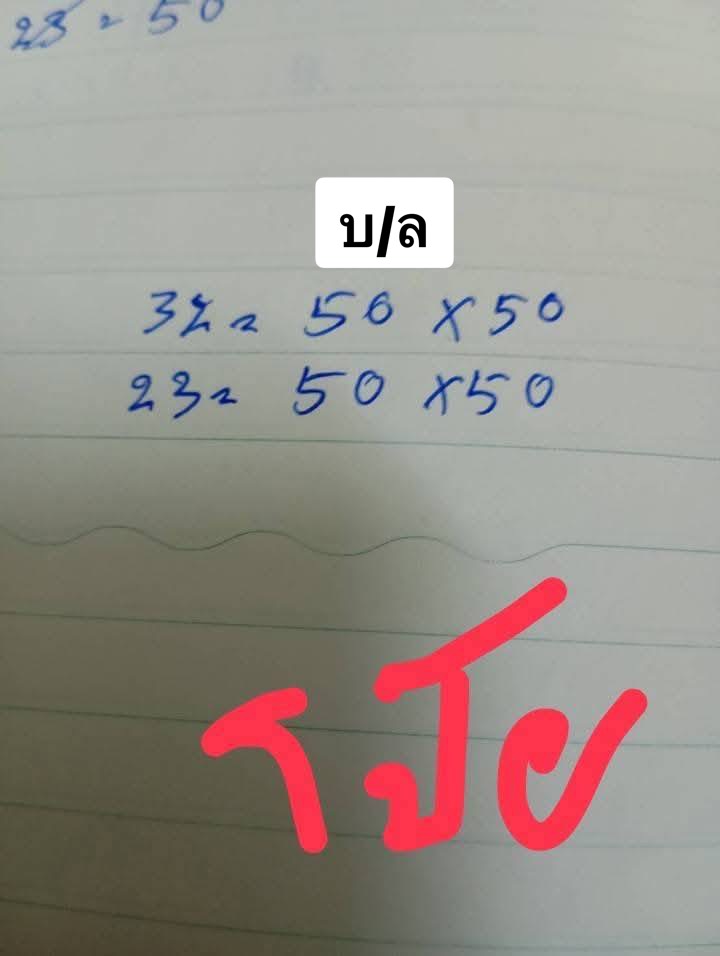 23 = 50
บ/ล
32 = 50 x 50
23 = 50 x 50
โป้ย